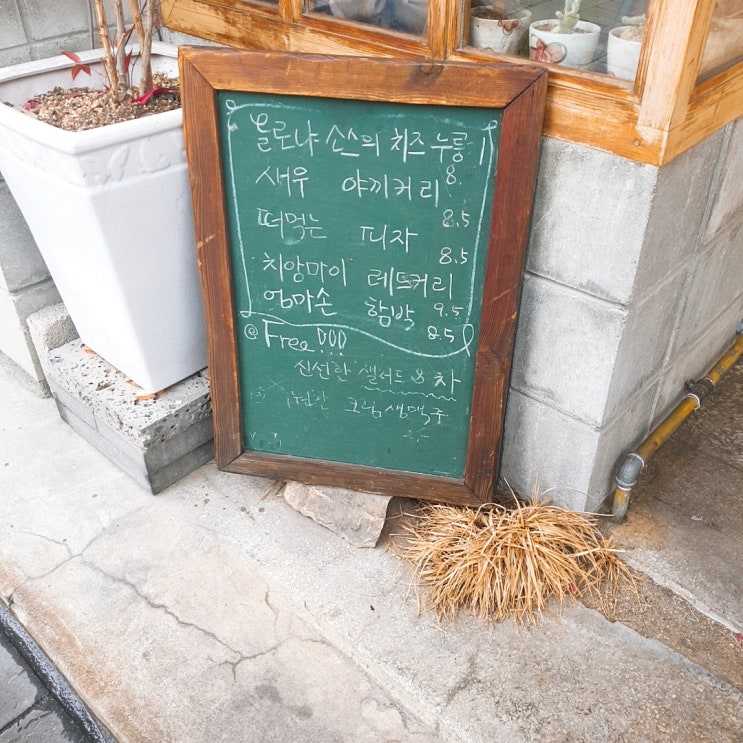 볼로냐 소스의 치즈 누룽 1
새우 야끼커리 8.
떠먹는 피자 8.5
치앙마이 레드커리 8.5
엄마손 함박 9.5
@Free!!! 8.5
신선한 샐러드 & 차
크림생맥주